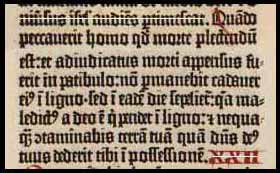 audiēs ꝑtimescat. Quādo
peccauerit homo qđ morte plectendū
est: et adiudicatus morti appensus fu-
erit in patibulo: nō ꝑmanebit cadauer
eiꝰ ī ligno: sed ī eadē die sepeliet᷑: q̇a ma-
ledictꝰ a deo ē q̇ pendet ī ligno: ⁊ nequa-
q̄ʒ ɔtaminabis terrā tuā quā dn̄s deꝰ
tuus dederit tibi ī possessionē. XXII